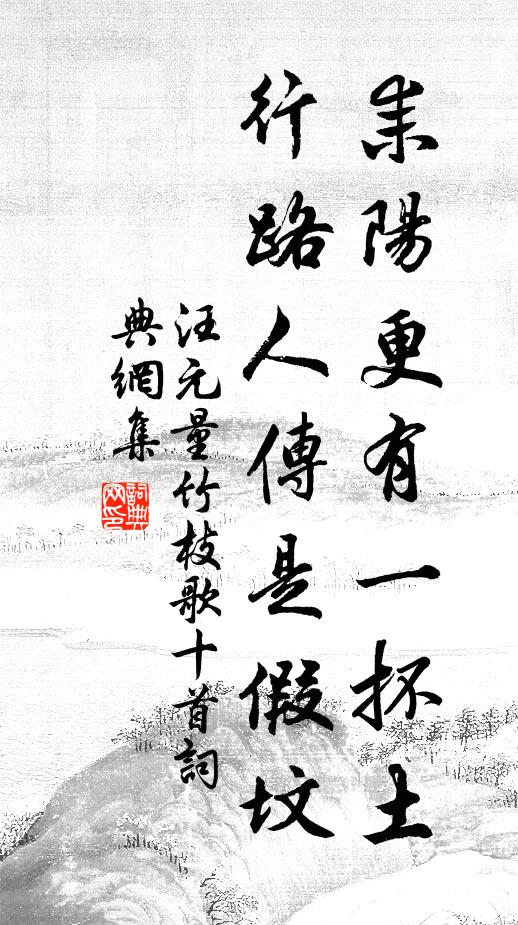 耒陽更有一抔土
行路人傳是假坟
汪元量竹枝歌十首詞
典網集
詞典
网印